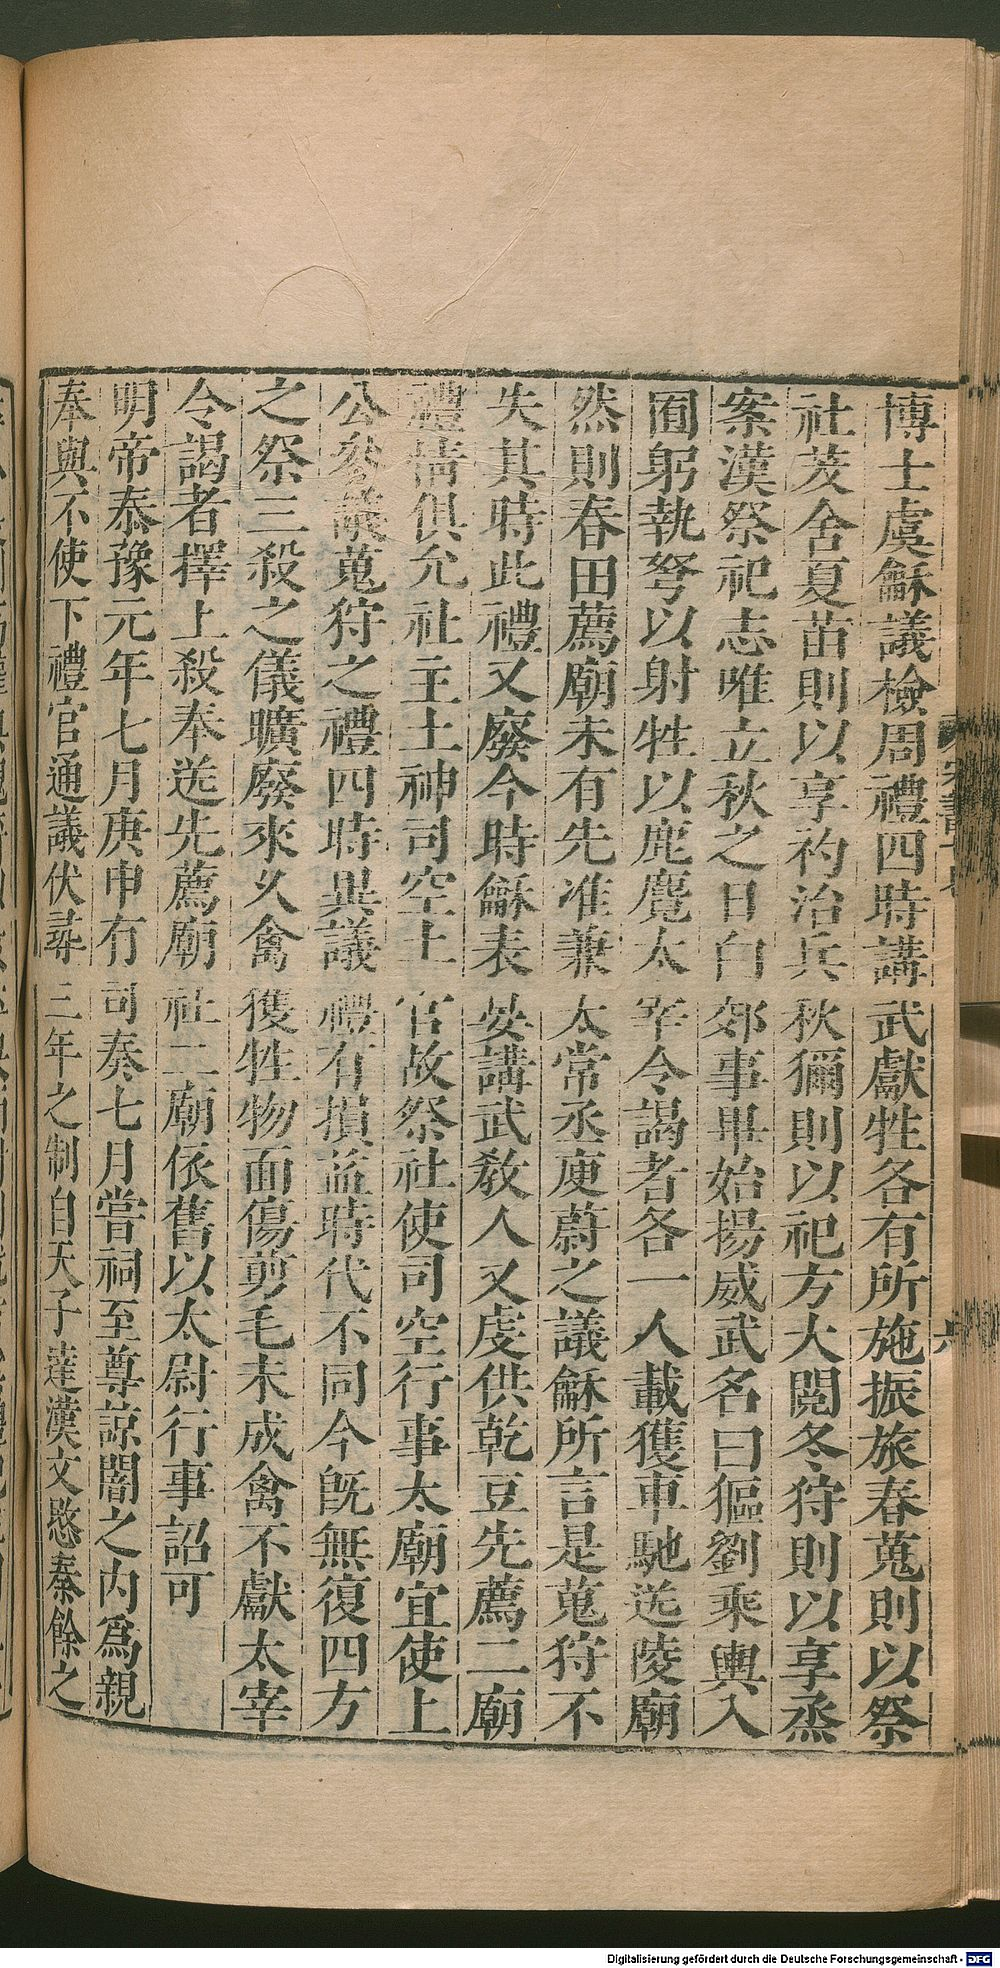 博士虞龢議檢周禮四時講武獻牲各有所施振旅春蒐則以祭
社茇舍夏苗則以享礿治兵秋獮則以祀方大閱冬狩則以享烝
案漢祭祀志唯立秋之日白郊事畢始揚威武名曰貙劉乘輿入
囿躬執弩以射牲以鹿麛太宰令謁者各一人載獲車馳送陵廟
然則春田薦廟未有先准兼太常丞庾蔚之議龢所言是蒐狩不
失其時此禮又廢今時龢表晏講武教人又虔供乾豆先薦二廟
禮情俱允社主土神司空土官故祭社使司空行事太廟宜使上
公參議蒐狩之禮四時異議禮有損益時代不同今既無復四方
之祭三殺之儀曠廢來久禽獲牲物面傷剪毛未成禽不獻太宰
令謁者擇上殺奉送先薦廟社二廟依舊以太尉行事詔可
明帝泰豫元年七月庚申有司奏七月嘗祠至尊諒闇之內爲親
奉與不使下禮官通議伏尋三年之制自天子達漢文愍秦餘之
六
Digitalisierung gefördert durch die Deutsche Forschungsgemeinschaft - DFG